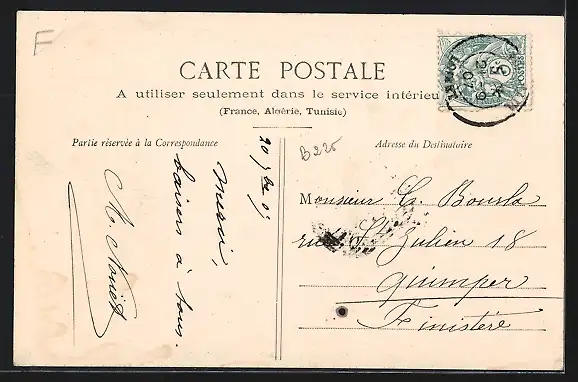 F
CARTE POSTALE
A utiliser seulement dans le service intérieu
(France, Algérie, Tunisie)
Partie réservée à la Correspondance
Adresse du Destinataire
B225
20 7bre 05
merci,
baisers à tous.
Monsieur
rue St Julien 18
Quimper
Finistère